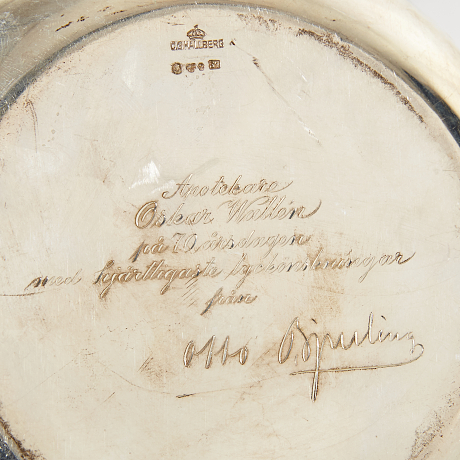 C.G. HALLBERG
Apotekare
Oskar Wallén
på 70 årsdagen
med hjärtligaste lyckönskningar
från
Otto Bjurling